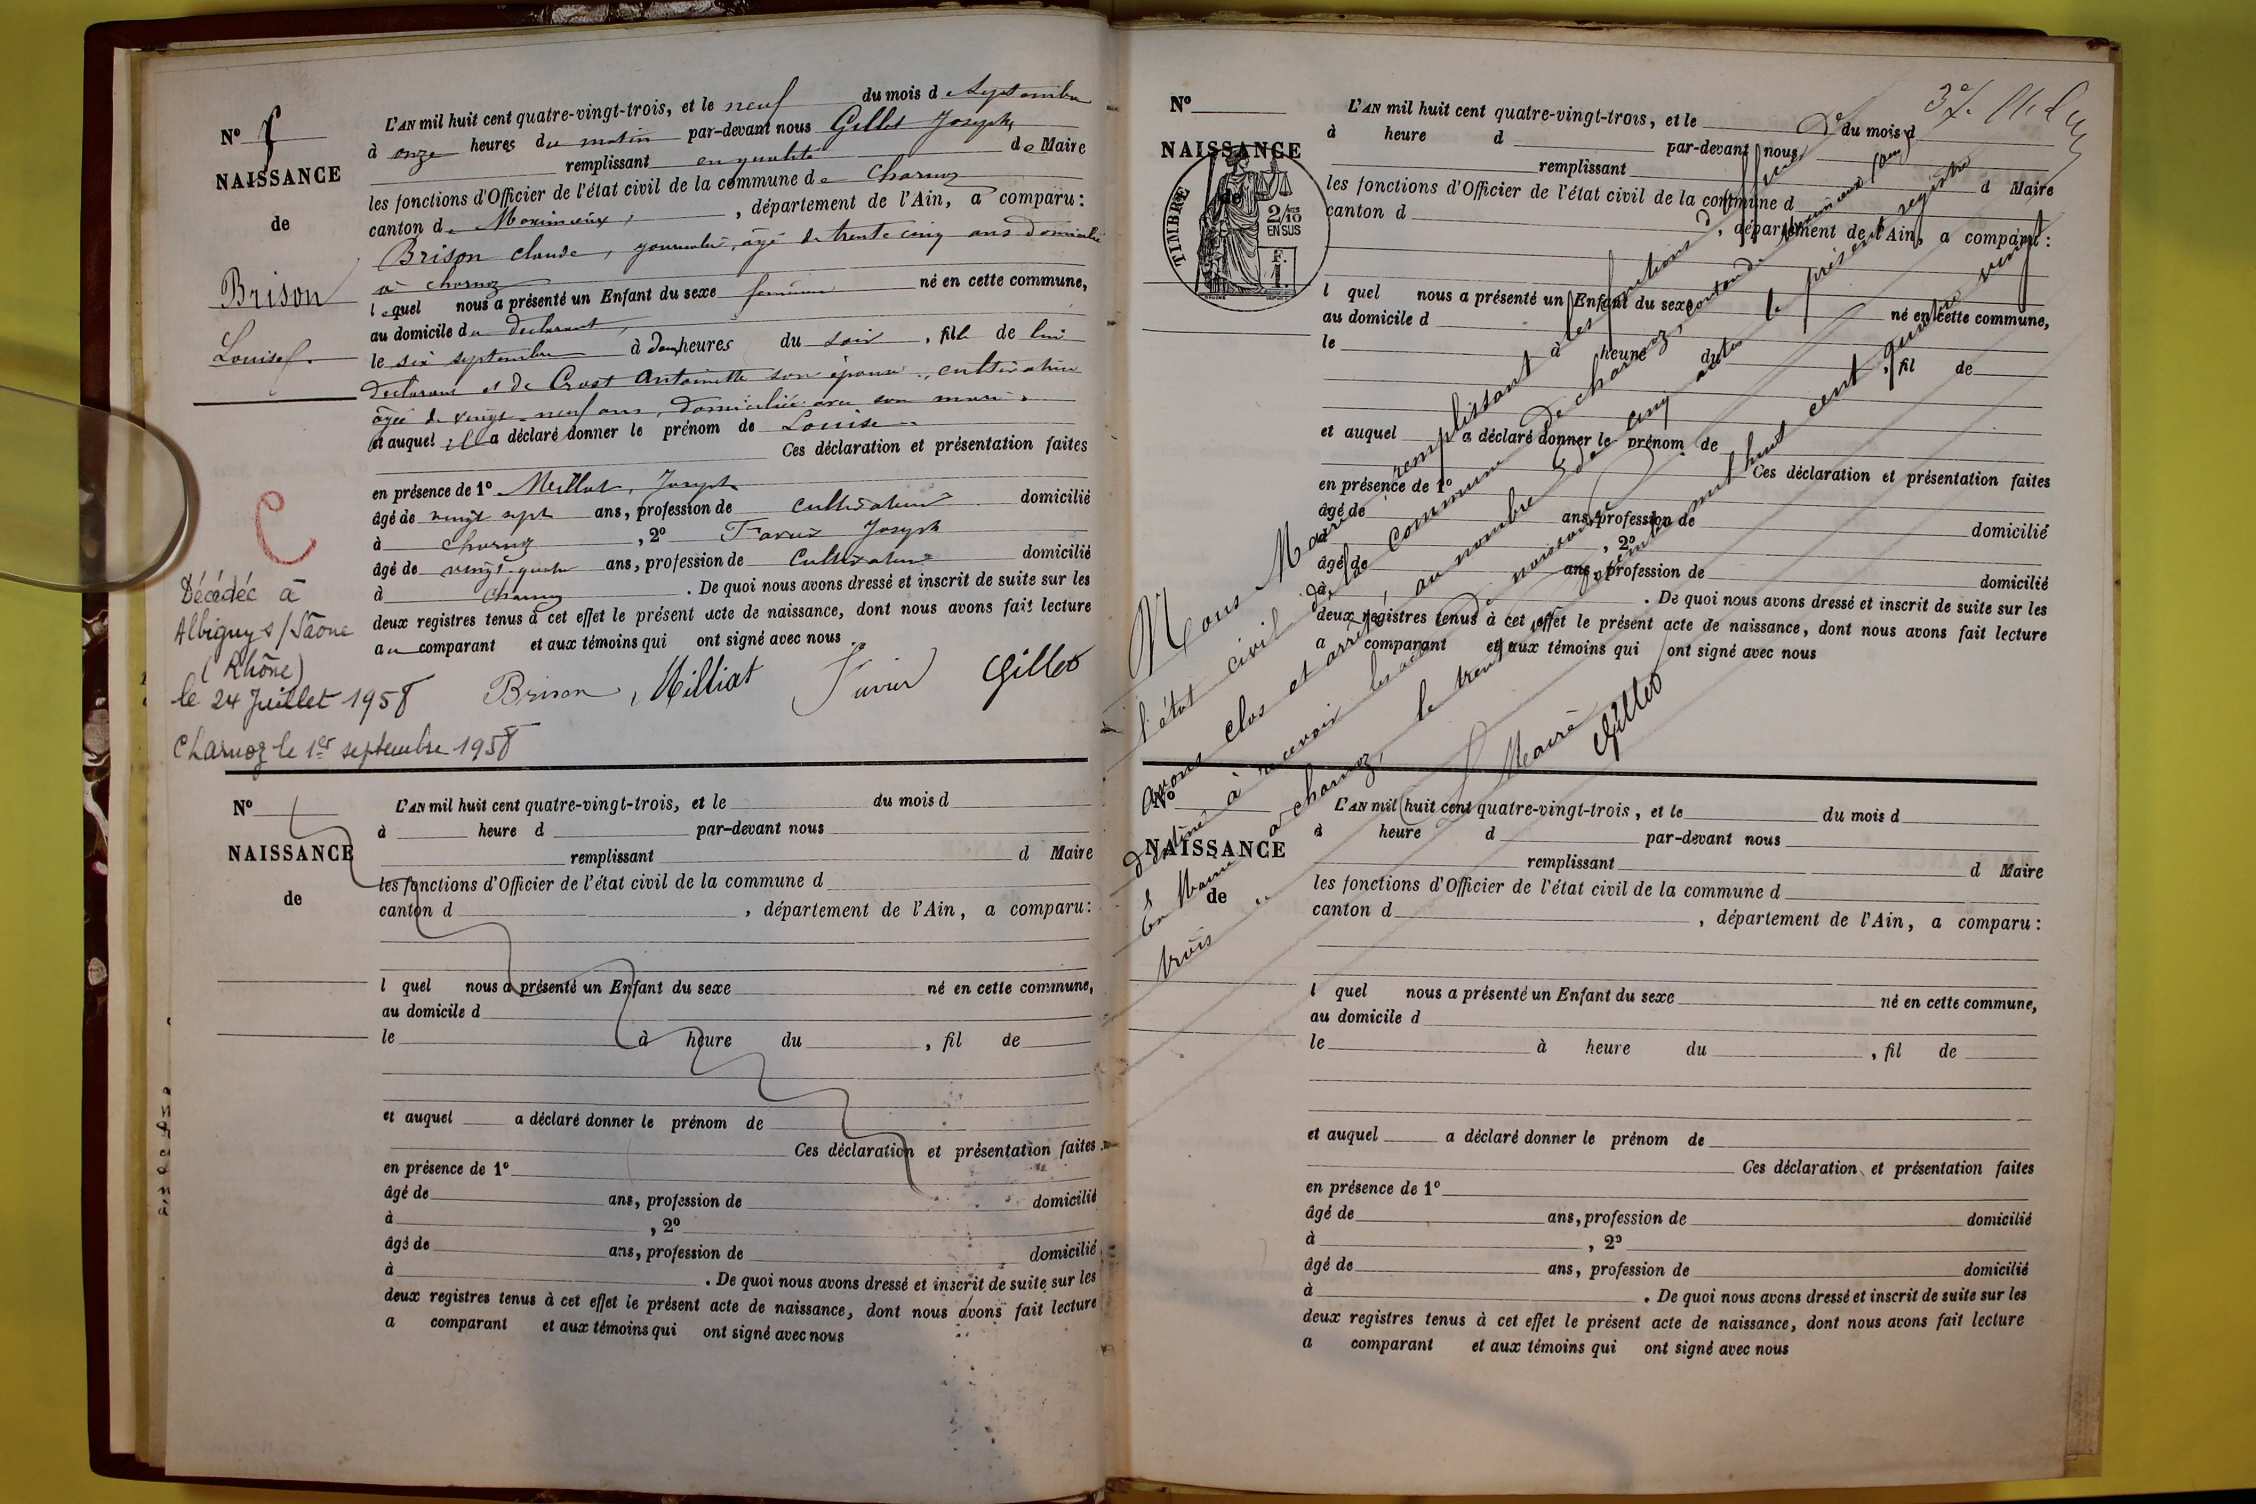 L'AN mil huit cent quatre-vingt-trois, et le neuf du mois de Septembre
à onze heures du matin par-devant nous Gillet Joseph,
remplissant en qualité de Maire
les fonctions d'Officier de l'état civil de la commune de Charnoz
canton de Meximieux, , département de l'Ain, a comparu:
Brison Claude, journalier, âgé de trente cinq ans domicilié
à charnoz
lequel nous a présenté un Enfant du sexe féminin né en cette commune,
au domicile du déclarant,
le six septembre à deux heures du soir , fille de lui
déclarant et de Crost Antoinette son épouse, cultivatrice
âgée de vingt-neuf ans, domiciliée avec son mari.
et auquel il a déclaré donner le prénom de Louise
Ces déclaration et présentation faites
en présence de 1º Milliat, Joseph
âgé de vingt sept ans, profession de cultivateur domicilié
à charnoz , 2º Joseph
âgé de vingt-quatre ans, profession de Cultivateur domicilié
à Charnoz . De quoi nous avons dressé et inscrit de suite sur les
deux registres tenus à cet effet le présent acte de naissance, dont nous avons fait lecture
au comparant et aux témoins qui ont signé avec nous
Brison Milliat Gillet
Nº
NAISSANCE
de
Brison
Louise
C
Décédée à
Albigny s/Saône
(Rhône)
le 24 Juillet 1958
Charnoz le 1er septembre 1958
Nº
NAISSANCE
de
L'AN mil huit cent quatre-vingt-trois, et le du mois d
à heure d par-devant nous
remplissant d Maire
les fonctions d'Officier de l'état civil de la commune d
canton d , département de l'Ain, a comparu:
l quel nous a présenté un Enfant du sexe né en cette commune,
au domicile d
le à heure du , fil de
et auquel a déclaré donner le prénom de
Ces déclaration et présentation faites
en présence de 1º
âgé de ans, profession de domicilié
à , 2º
âgé de ans, profession de domicilié
à . De quoi nous avons dressé et inscrit de suite sur les
deux registres tenus à cet effet le présent acte de naissance, dont nous avons fait lecture
a comparant et aux témoins qui ont signé avec nous
Nº
NAISSANCE
de
TIMBRE
2/10
EN SUS
F.
1.
L'AN mil huit cent quatre-vingt-trois, et le du mois d
à heure d par-devant nous
remplissant d Maire
les fonctions d'Officier de l'état civil de la commune d
canton d , département de l'Ain, a comparu:
l quel nous a présenté un Enfant du sexe né en cette commune,
au domicile d
le à heure du , fil de
et auquel a déclaré donner le prénom de
Ces déclaration et présentation faites
en présence de 1º
âgé de ans, profession de domicilié
à , 2º
âgé de ans, profession de domicilié
à . De quoi nous avons dressé et inscrit de suite sur les
deux registres tenus à cet effet le présent acte de naissance, dont nous avons fait lecture
a comparant et aux témoins qui ont signé avec nous
Nous Maire remplissant les fonctions d'officier de
l'état civil de la commune de charnoz, canton de Meximieux (Ain)
avons clos et arrêté, au nombre de cinq actes le présent registre
destiné à recevoir les actes de naissance
En Mairie à charnoz, le trente un décembre mil huit cent quatre vingt
trois
Le Maire
Gillet
Nº
NAISSANCE
de
L'AN mil huit cent quatre-vingt-trois, et le du mois d
à heure d par-devant nous
remplissant d Maire
les fonctions d'Officier de l'état civil de la commune d
canton d , département de l'Ain, a comparu:
l quel nous a présenté un Enfant du sexe né en cette commune,
au domicile d
le à heure du , fil de
et auquel a déclaré donner le prénom de
Ces déclaration et présentation faites
en présence de 1º
âgé de ans, profession de domicilié
à , 2º
âgé de ans, profession de domicilié
à . De quoi nous avons dressé et inscrit de suite sur les
deux registres tenus à cet effet le présent acte de naissance, dont nous avons fait lecture
a comparant et aux témoins qui ont signé avec nous